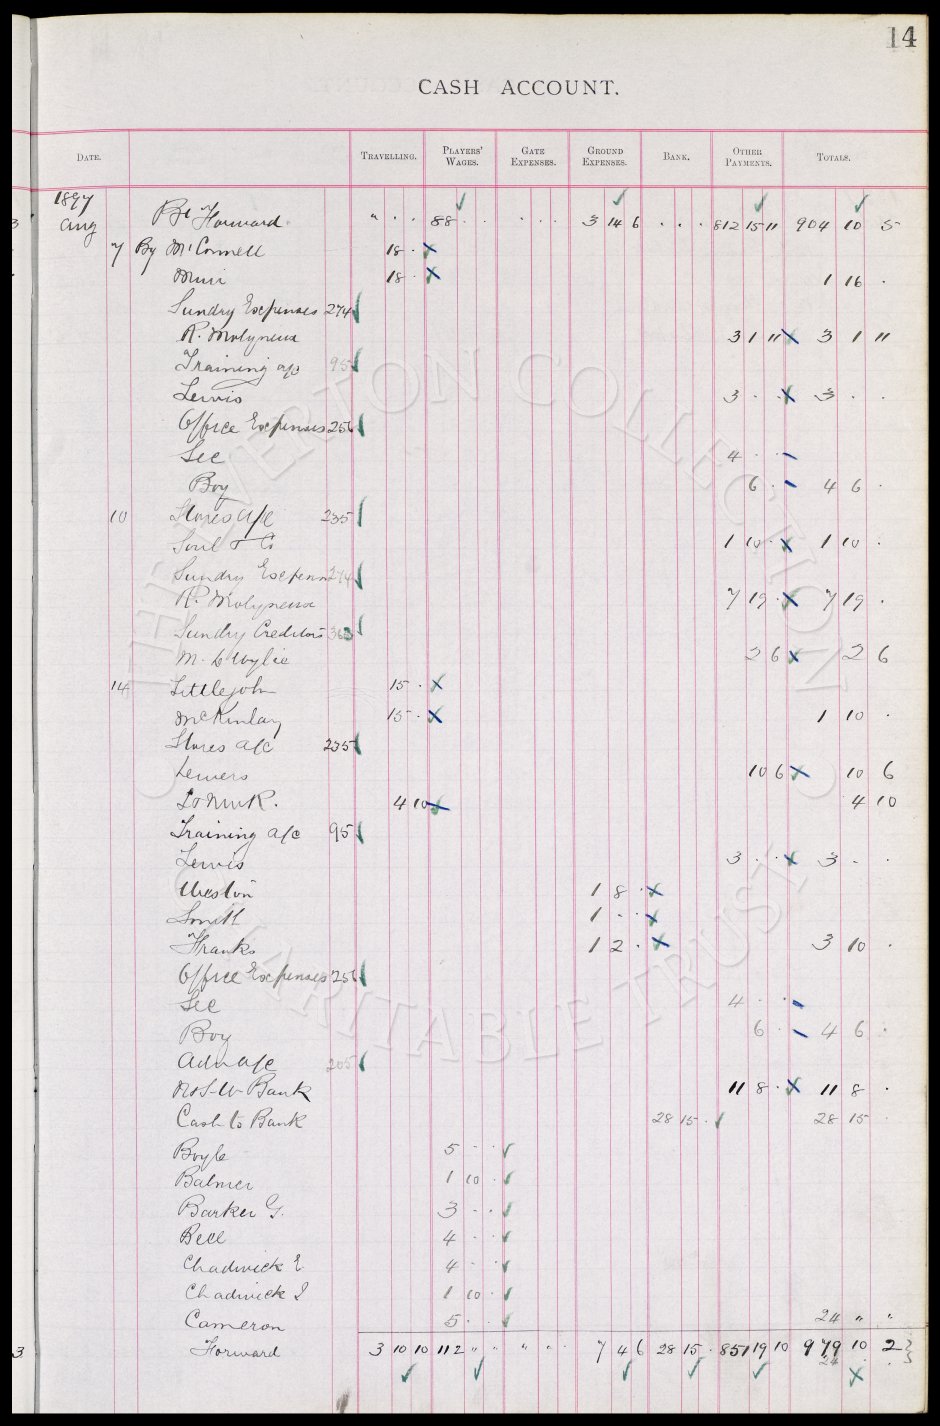 14
CASH ACCOUNT.
DATE. TRAVELLING. PLAYERS' WAGES. GATE EXPENSES. GROUND EXPENSES. BANK. OTHER PAYMENTS. TOTALS.
1897
Aug Bt Forward " . . 88 . . . . . 3 14 6 . . . 812 15 11 904 10 5
7 By McConnell 18 .
Muir 18 . 1 16 .
Sundry Expenses 274
R. Molyneux 3 1 11 3 1 11
Training a/c 95
Lewis 3 . . 3 . .
Office Expenses 256
Sec 4 . .
Boy 6 . 4 6 .
10 Stores a/c 235
Soul & Co 1 10 . 1 10 .
Sundry Expenses 274
R. Molyneux 7 19 . 7 19 .
Sundry Creditors 363
M. C Wylie 2 6 2 6
14 Littlejohn 15 .
McKinlay 15 . 1 10 .
Stores a/c 235
Lewers 10 6 10 6
4 10 4 10
Training a/c 95
Lewis 3 . . 3 . .
Weston 1 8 .
Smith 1 . .
Franks 1 2 . 3 10 .
Office Expenses 256
Sec 4 . .
Boy 6 . 4 6 .
Adv a/c 205
N & S W Bank 11 8 . 11 8 .
Cash to Bank 28 15 . 28 15 .
Boyle 5 . .
Balmer 1 10 .
Barker G. 3 . .
Bell 4 . .
Chadwick E 4 . .
Chadwick I 1 10 .
Cameron 5 . . 24 " "
Forward 3 10 10 112 " " " . . 7 4 6 28 15 . 851 19 10 979 10 2
24
3
3
THE EVERTON COLLECTION CHARITABLE TRUST